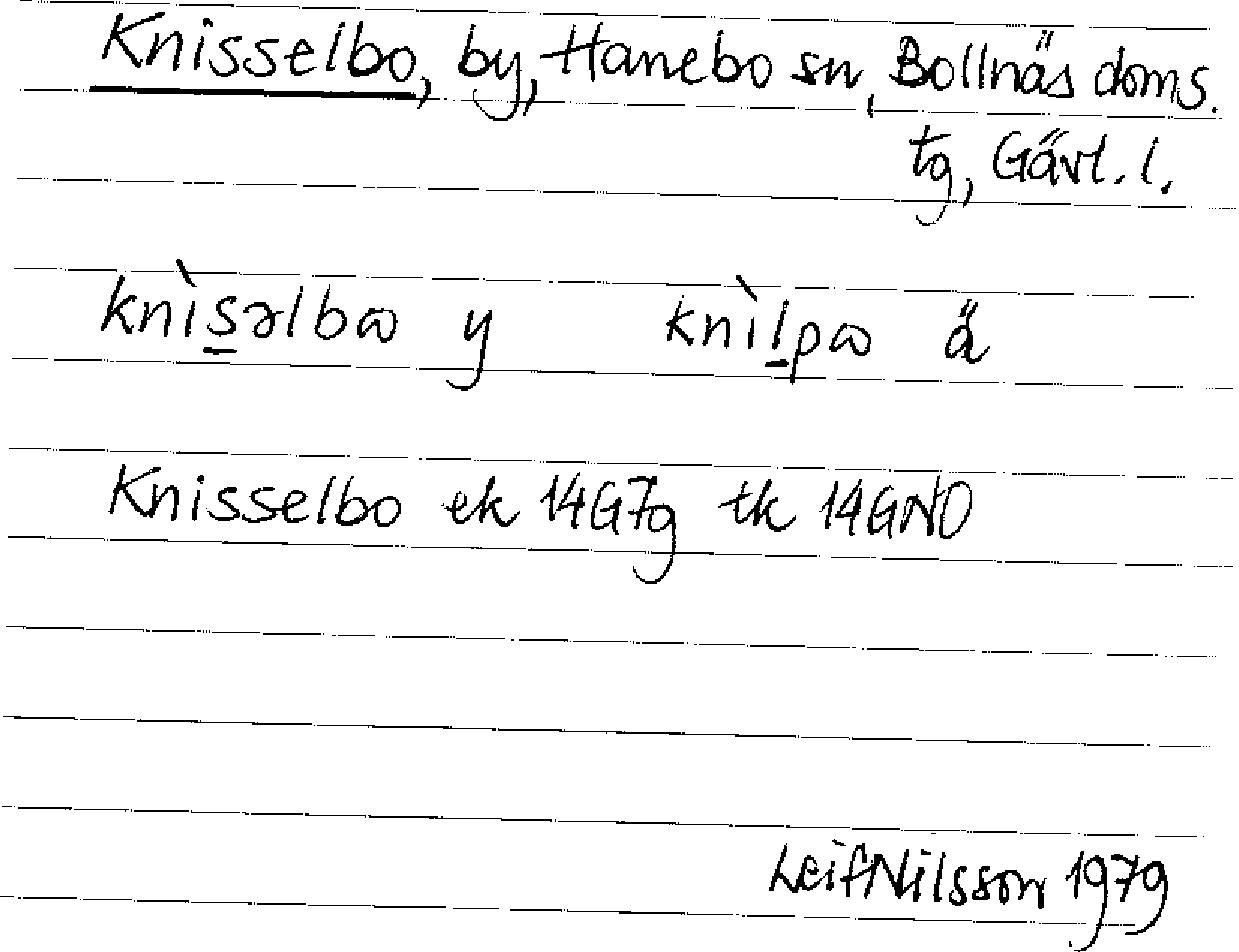 Knisselbo, by, Hanebo sn, Bollnäs doms.
tg, Gävl. l.
knìs̲əlbɷ y knìl̲pɷ ä
Knisselbo ek 14G7g tk 14GNO
Leif Nilsson 1979